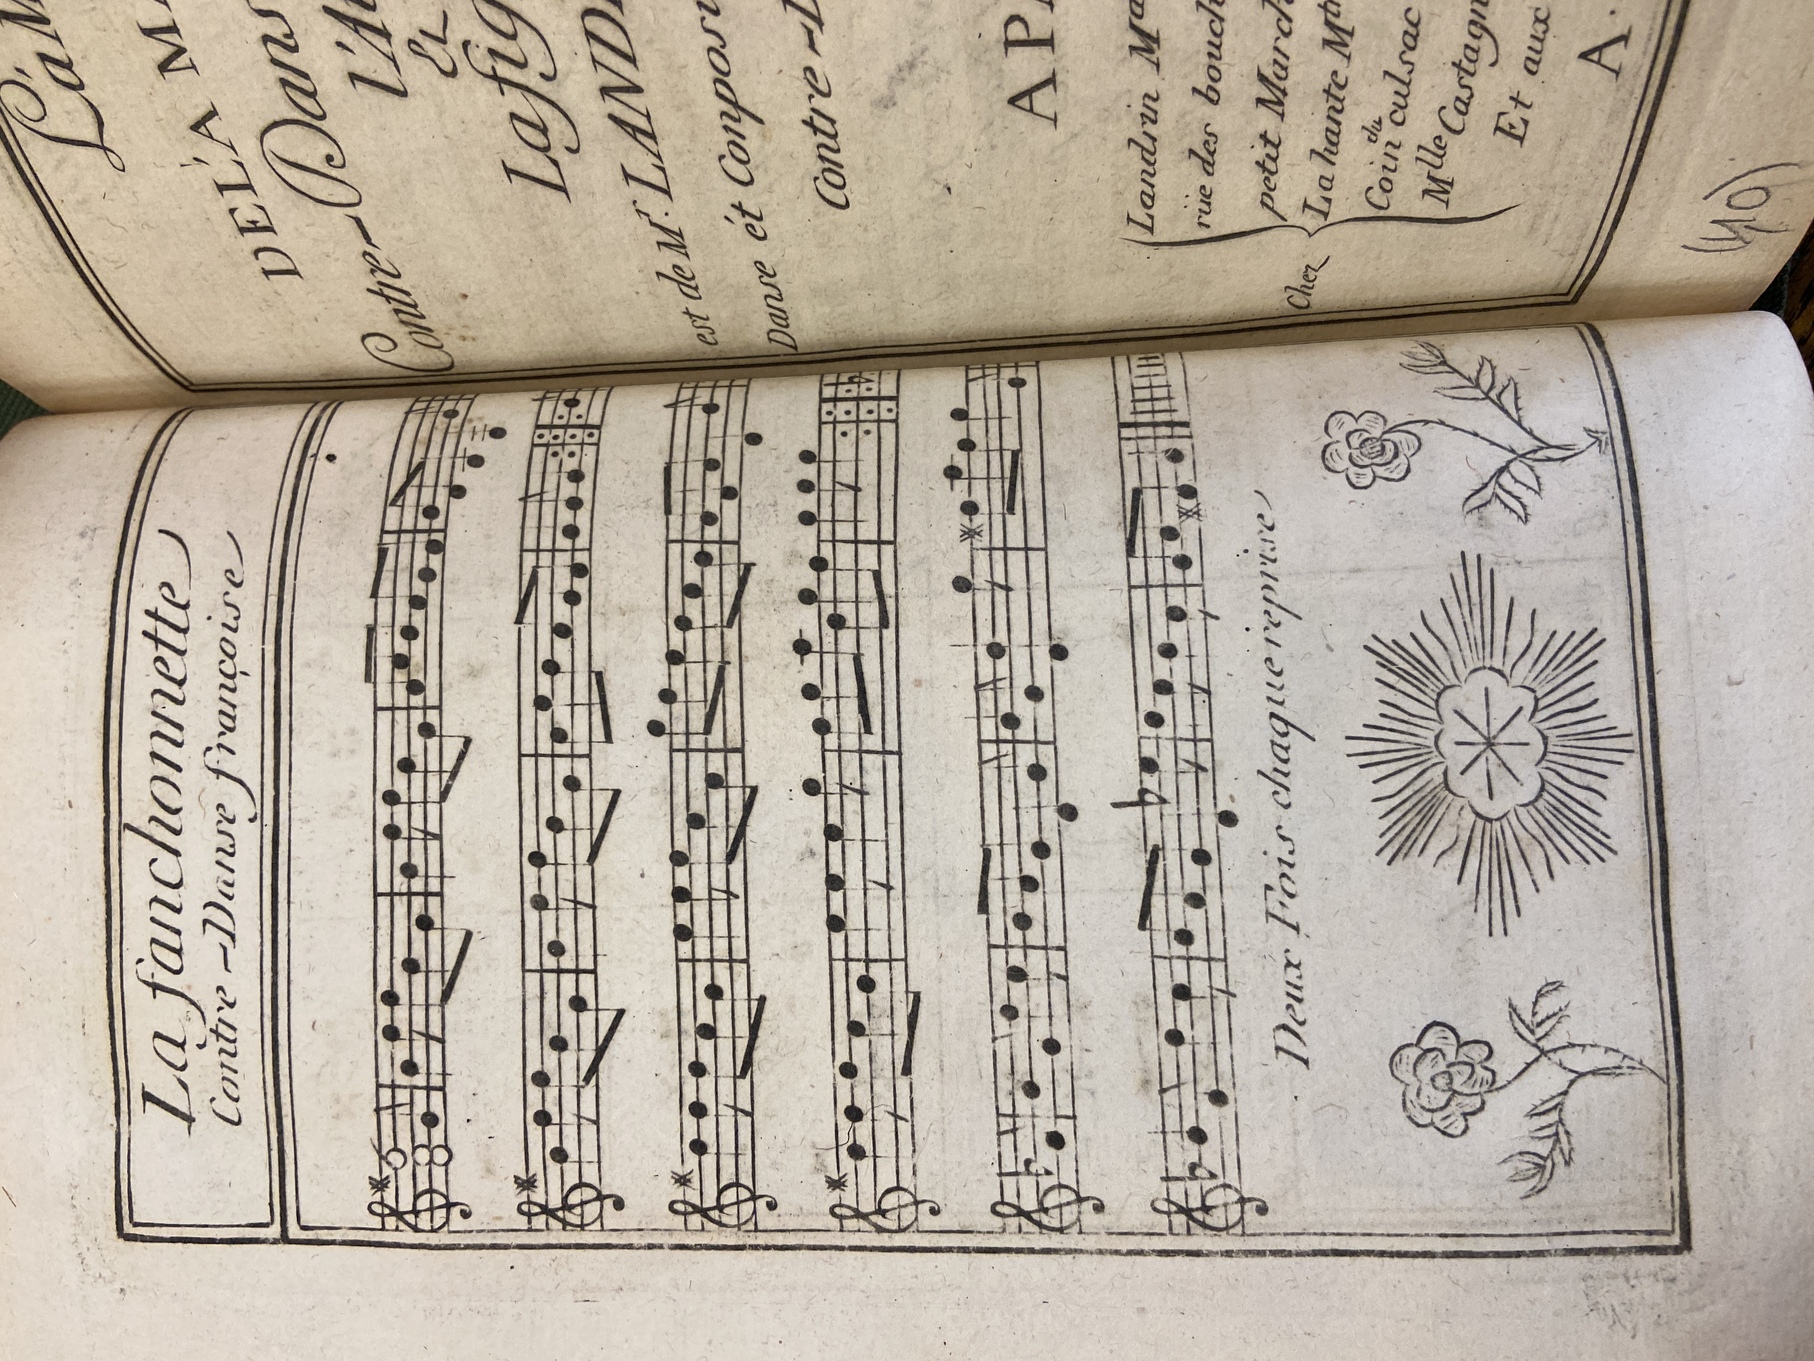 La fanchonnette
Contre-Danse françoise
3
8
Deux Fois chaque reprise
DE LA
Contre-Dans
Et
La fig
est de Mr. LAND
Danse ét Composi
Contre-
Landrin
rüe des bouch
petit March
La hante
Cher
Coin du culsac
Mlle Castagn
Et aux
A
(40)